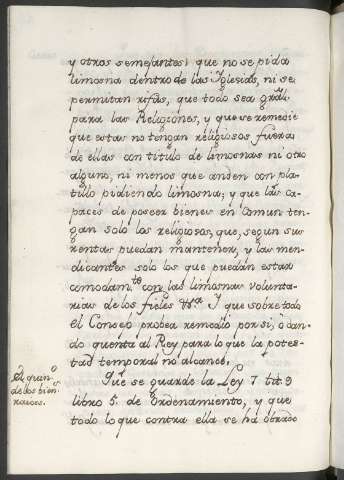 y otros semejantes; que no se pida
limosna dentro de las Iglesias, ni se
permutan rifas, que todo sea gral
para las Religiones, y que se remedie
que estas no tengan religiosos fuera
de ellas con titulo de limosnas ni otro
alguno, ni menos que anden con pla-
tillo pidiendo limosna; y que las ca-
paces de poseer bienes en comun ten-
gan solo los religiosos, que, segun sus
rentas puedan mantener, y las men-
dicantes solo los que puedan estar
comodamte con las limosnas volunta-
rias de los fieles &a. Y que sobre todo
el Consejo probea remedio por si, ó dan-
do quenta al Rey para lo que la potes-
tad temporal no alcance.
Al quin-
de los bien
raices.
Que se guarde la Ley 7 tit 9
libro 5. de Ordenamiento, y que
todo lo que contra ella se ha obrado